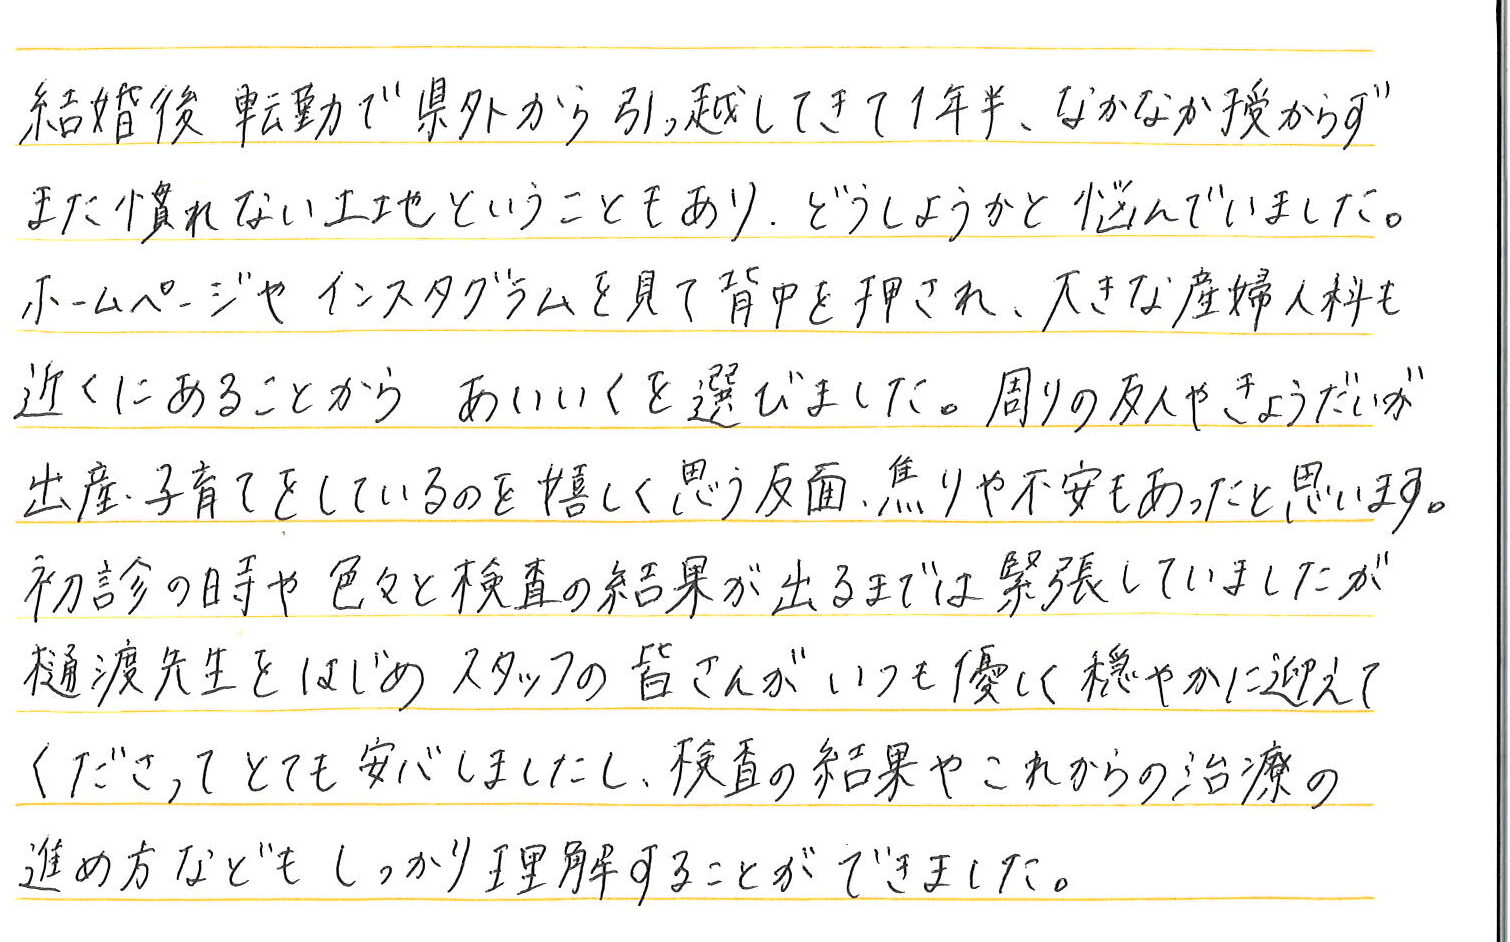 結婚後 転勤で 県外から 引っ越してきて1年半、なかなか授からず
まだ慣れない土地ということもあり、どうしようかと 悩んでいました。
ホームページや インスタグラムを見て 背中を押され、大きな産婦人科も
近くにあることから あいいくを選びました。周りの友人やきょうだいが
出産・子育てをしているのを嬉しく思う反面、焦りや不安もあったと思います。
初診の時や 色々と検査の結果が出るまでは緊張していましたが
樋渡先生をはじめ スタッフの皆さんが いつも優しく穏やかに迎えて
くださって とても安心しましたし、検査の結果や これからの治療の
進め方などもしっかり理解することができました。